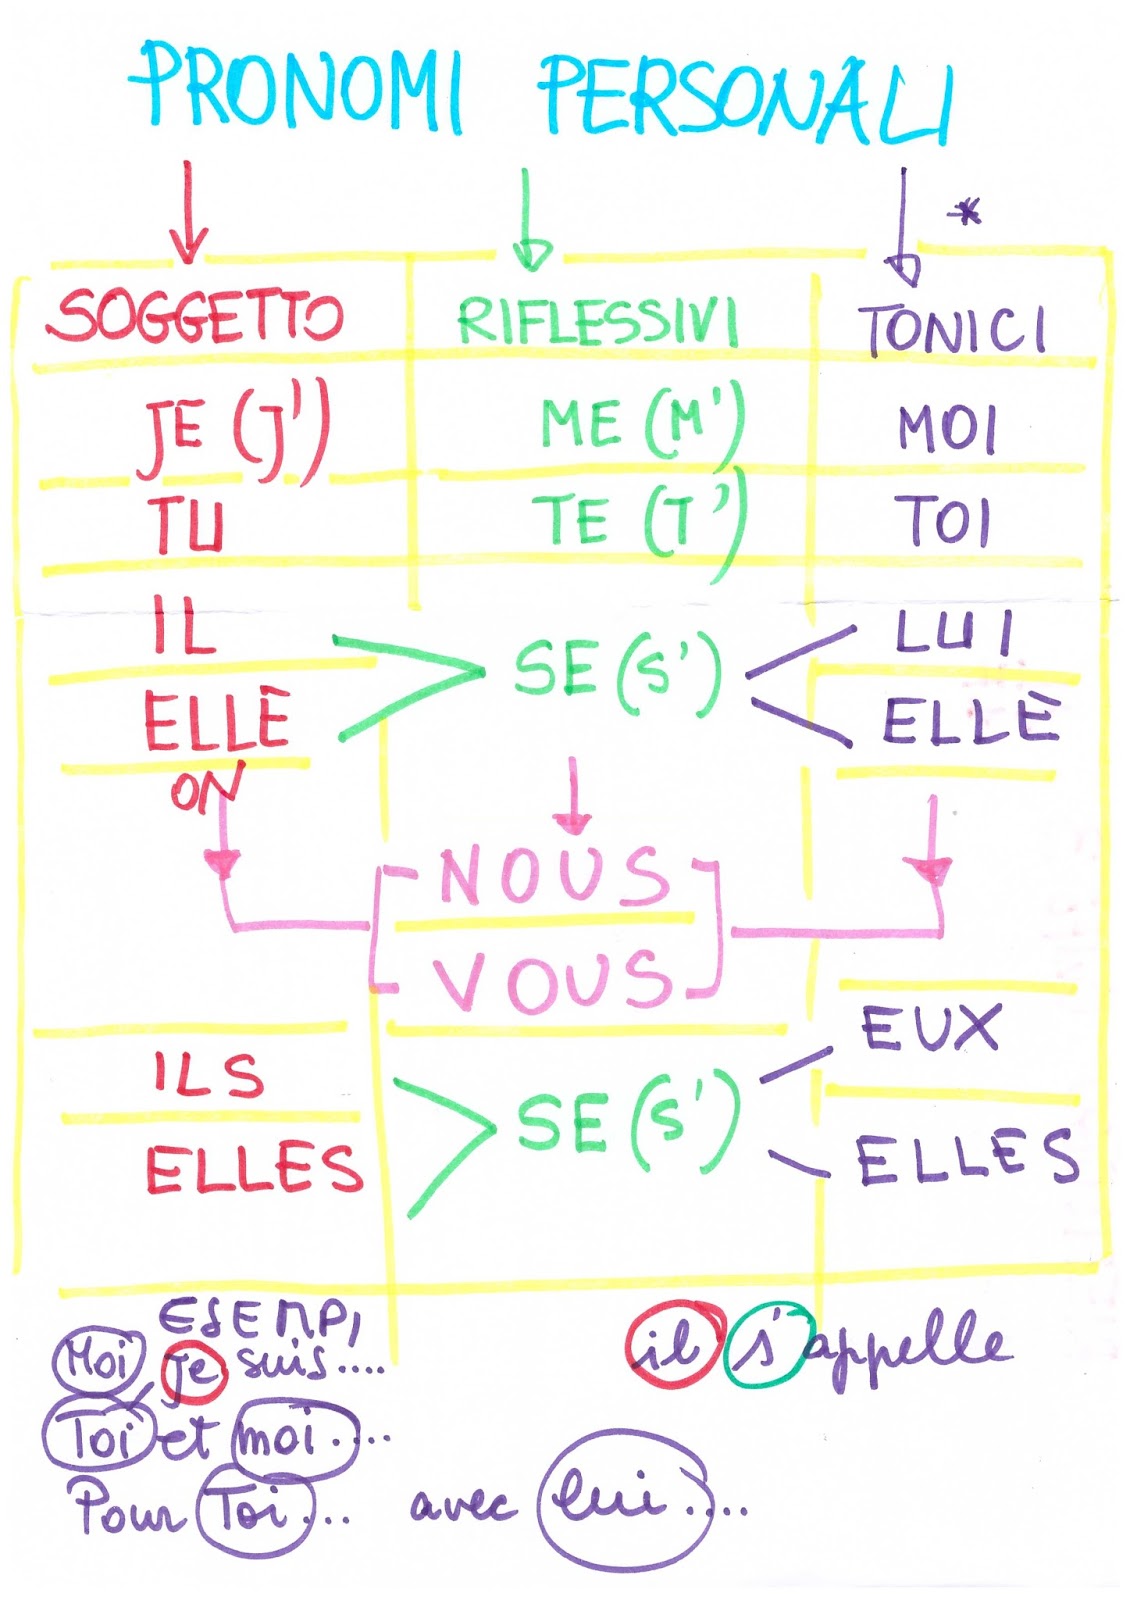 PRONOMI PERSONALI
*
SOGGETTO RIFLESSIVI TONICI
JE (J') ME (M') MOI
TU TE (T') TOI
IL SE (S') LUI
ELLE ELLE
ON
NOUS
VOUS
ILS SE (S') EUX
ELLES ELLES
ESEMPI
Moi, je suis.... il s'appelle
Toi et moi....
Pour Toi... avec lui....